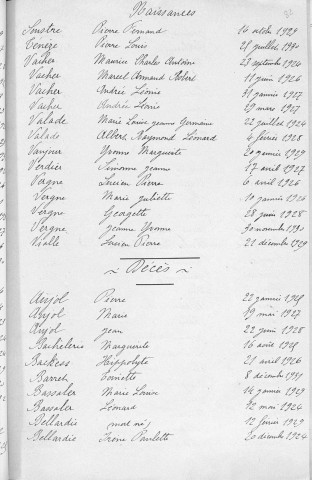 Naissances
Soustre Pierre Fernand 14 octobre 1929
Tenèze Pierre Louis 25 juillet 1930
Vacher Maurice Charles Antoine 23 septembre 1924
Vacher Marcel Armand Robert 11 juin 1926
Vacher Andrée Léonie janvier 1927
Vacher Andrée Léonie 29 mars 1927
Valade Marie Louise Jeanne Germaine 22 juillet 1924
Valade Albert Raymond Léonard 4 février 1928
Yvonne Marguerite 20 janvier 1929
Verdier Simonne Jeanne 17 avril 1927
Vergne Lucien Pierre 6 avril 1926
Vergne Marie Juliette 10 janvier 1926
Vergne Georgette 28 juin 1928
Vergne Jeanne Yvonne novembre 1930
Vialle Lucien Pierre 21 décembre 1929
~ Décès ~
Anjol Pierre 20 janvier
Anjol Marie 19 mai 1927
Anjol Jean 22 juin 1928
Bachelerie Marguerite 16 août
Backess Hippolyte 21 avril 1926
Barret 8 décembre
Bassaler Marie Louise 14 janvier 1929
Bassaler Léonard 12 mai 1924
Bellardie mort né 12 février 1929
Bellardie Irène Paulette 20 décembre 1924